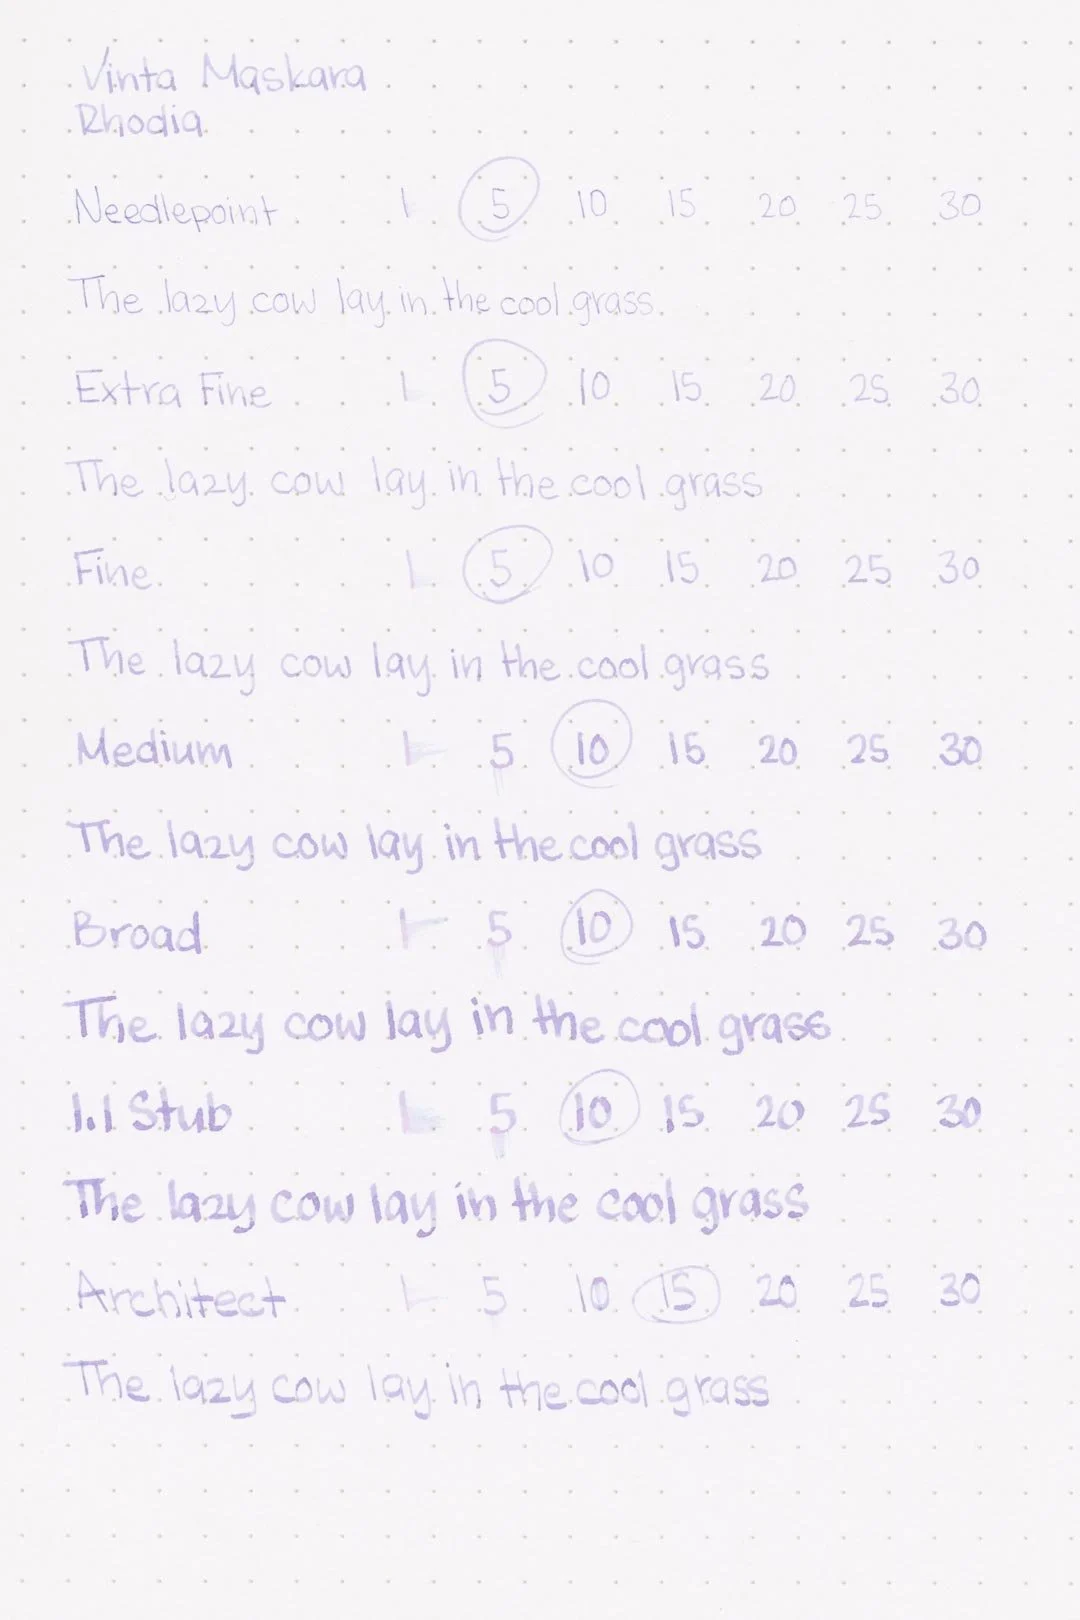 Vinta Maskara
Rhodia
Needlepoint 1 5 10 15 20 25 30
The lazy cow lay in the cool grass.
Extra Fine 1 5 10 15 20 25 30
The lazy cow lay in the cool grass
Fine 1 5 10 15 20 25 30
The lazy cow lay in the cool grass
Medium 1 5 10 15 20 25 30
The lazy cow lay in the cool grass
Broad 1 5 10 15 20 25 30
The lazy cow lay in the cool grass
1.1 Stub 1 5 10 15 20 25 30
The lazy cow lay in the cool grass
Architect 1 5 10 15 20 25 30
The lazy cow lay in the cool grass